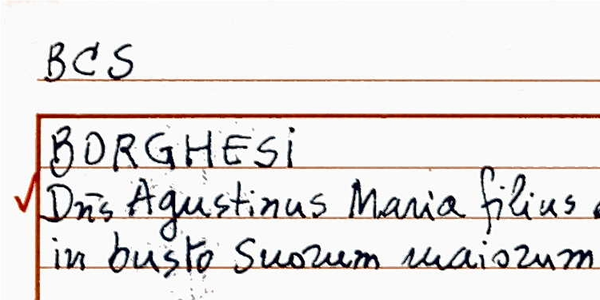 BCS
BORGHESI
Dn̄s Agustinus Maria filius
in busto suorum maiorum